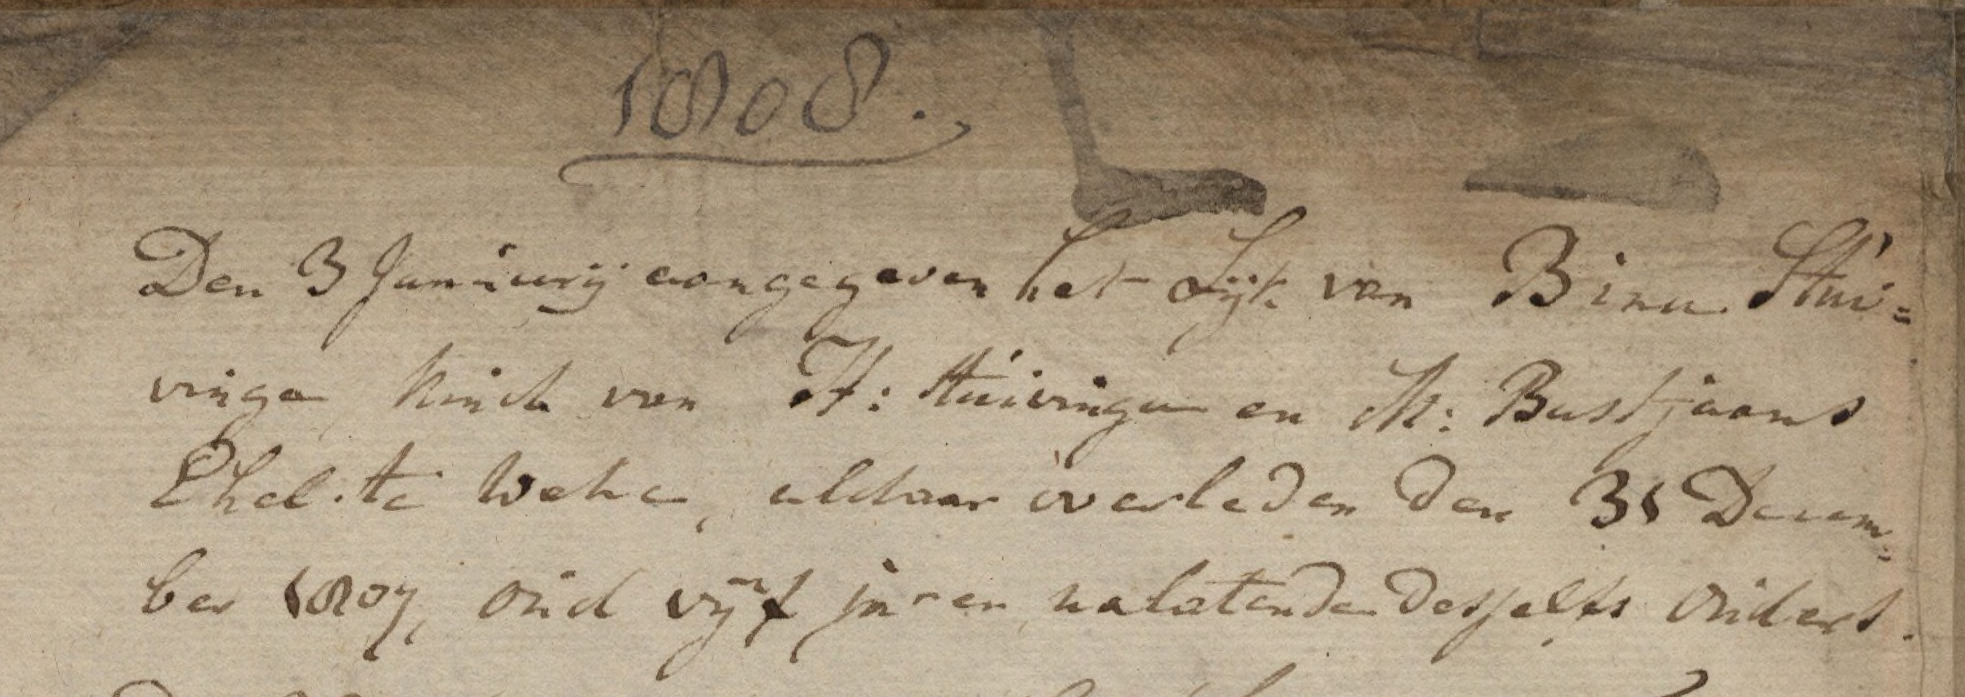 1808.,
Den 3 Januarij aangegeven het Lijk van Bina Stui=
vinga, kind van H: Stuivinga en M: Bastjaans
Ehel. te Wehe, aldaar overleden den 31 Decem=
ber 1807, oud vijf jaren nalatende desselfs ouders.